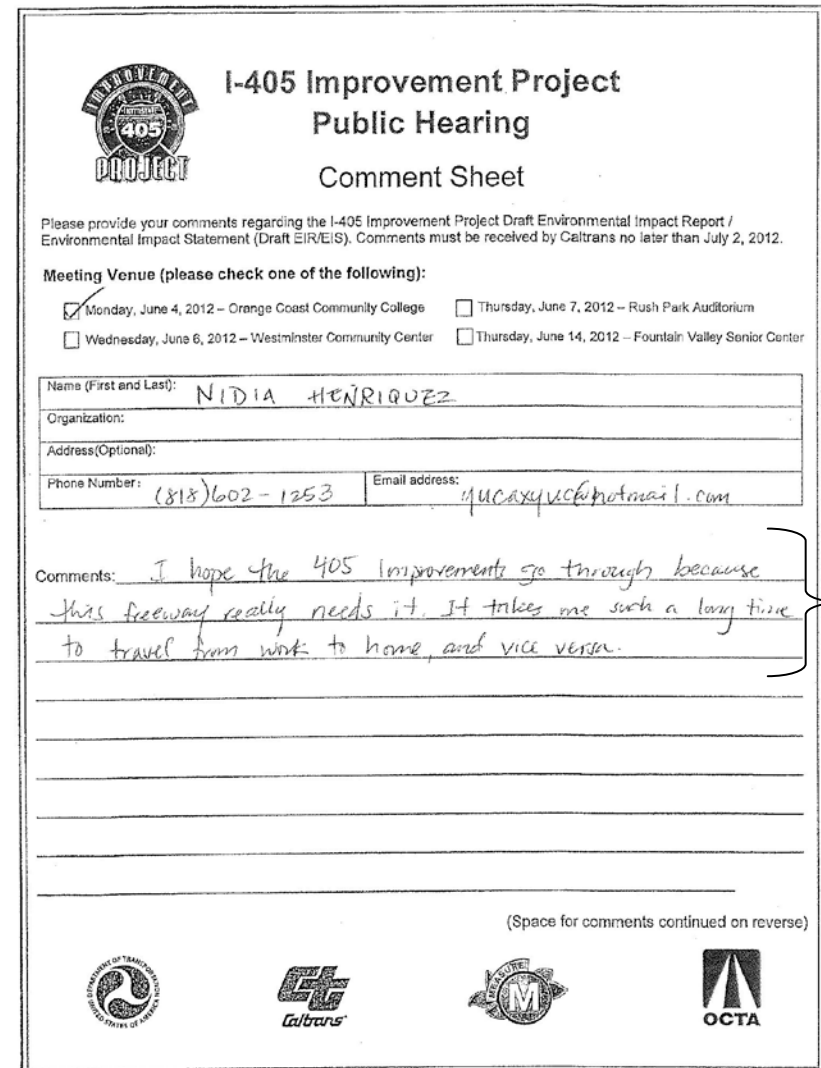 IMPROVEMENT
INTERSTATE
405
PROJECT
I-405 Improvement Project
Public Hearing
Comment Sheet
Please provide your comments regarding the I-405 Improvement Project Draft Environmental Impact Report /
Environmental Impact Statement (Draft EIR/EIS). Comments must be received by Caltrans no later than July 2, 2012.
Meeting Venue (please check one of the following):
Monday, June 4, 2012 – Orange Coast Community College
Thursday, June 7, 2012 – Rush Park Auditorium
Wednesday, June 6, 2012 – Westminster Community Center
Thursday, June 14, 2012 – Fountain Valley Senior Center
Name (First and Last): NIDIA HENRIQUEZ
Organization:
Address(Optional):
Phone Number: (818)602-1253
Email address: yucaxyuc@hotmail.com
Comments: I hope the 405 Improvements go through because
this freeway really needs it. It takes me such a long time
to travel from work to home, and vice versa.
(Space for comments continued on reverse)
DEPARTMENT OF TRANSPORTATION
UNITED STATES OF AMERICA
Caltrans
MEASURE
M
OCTA